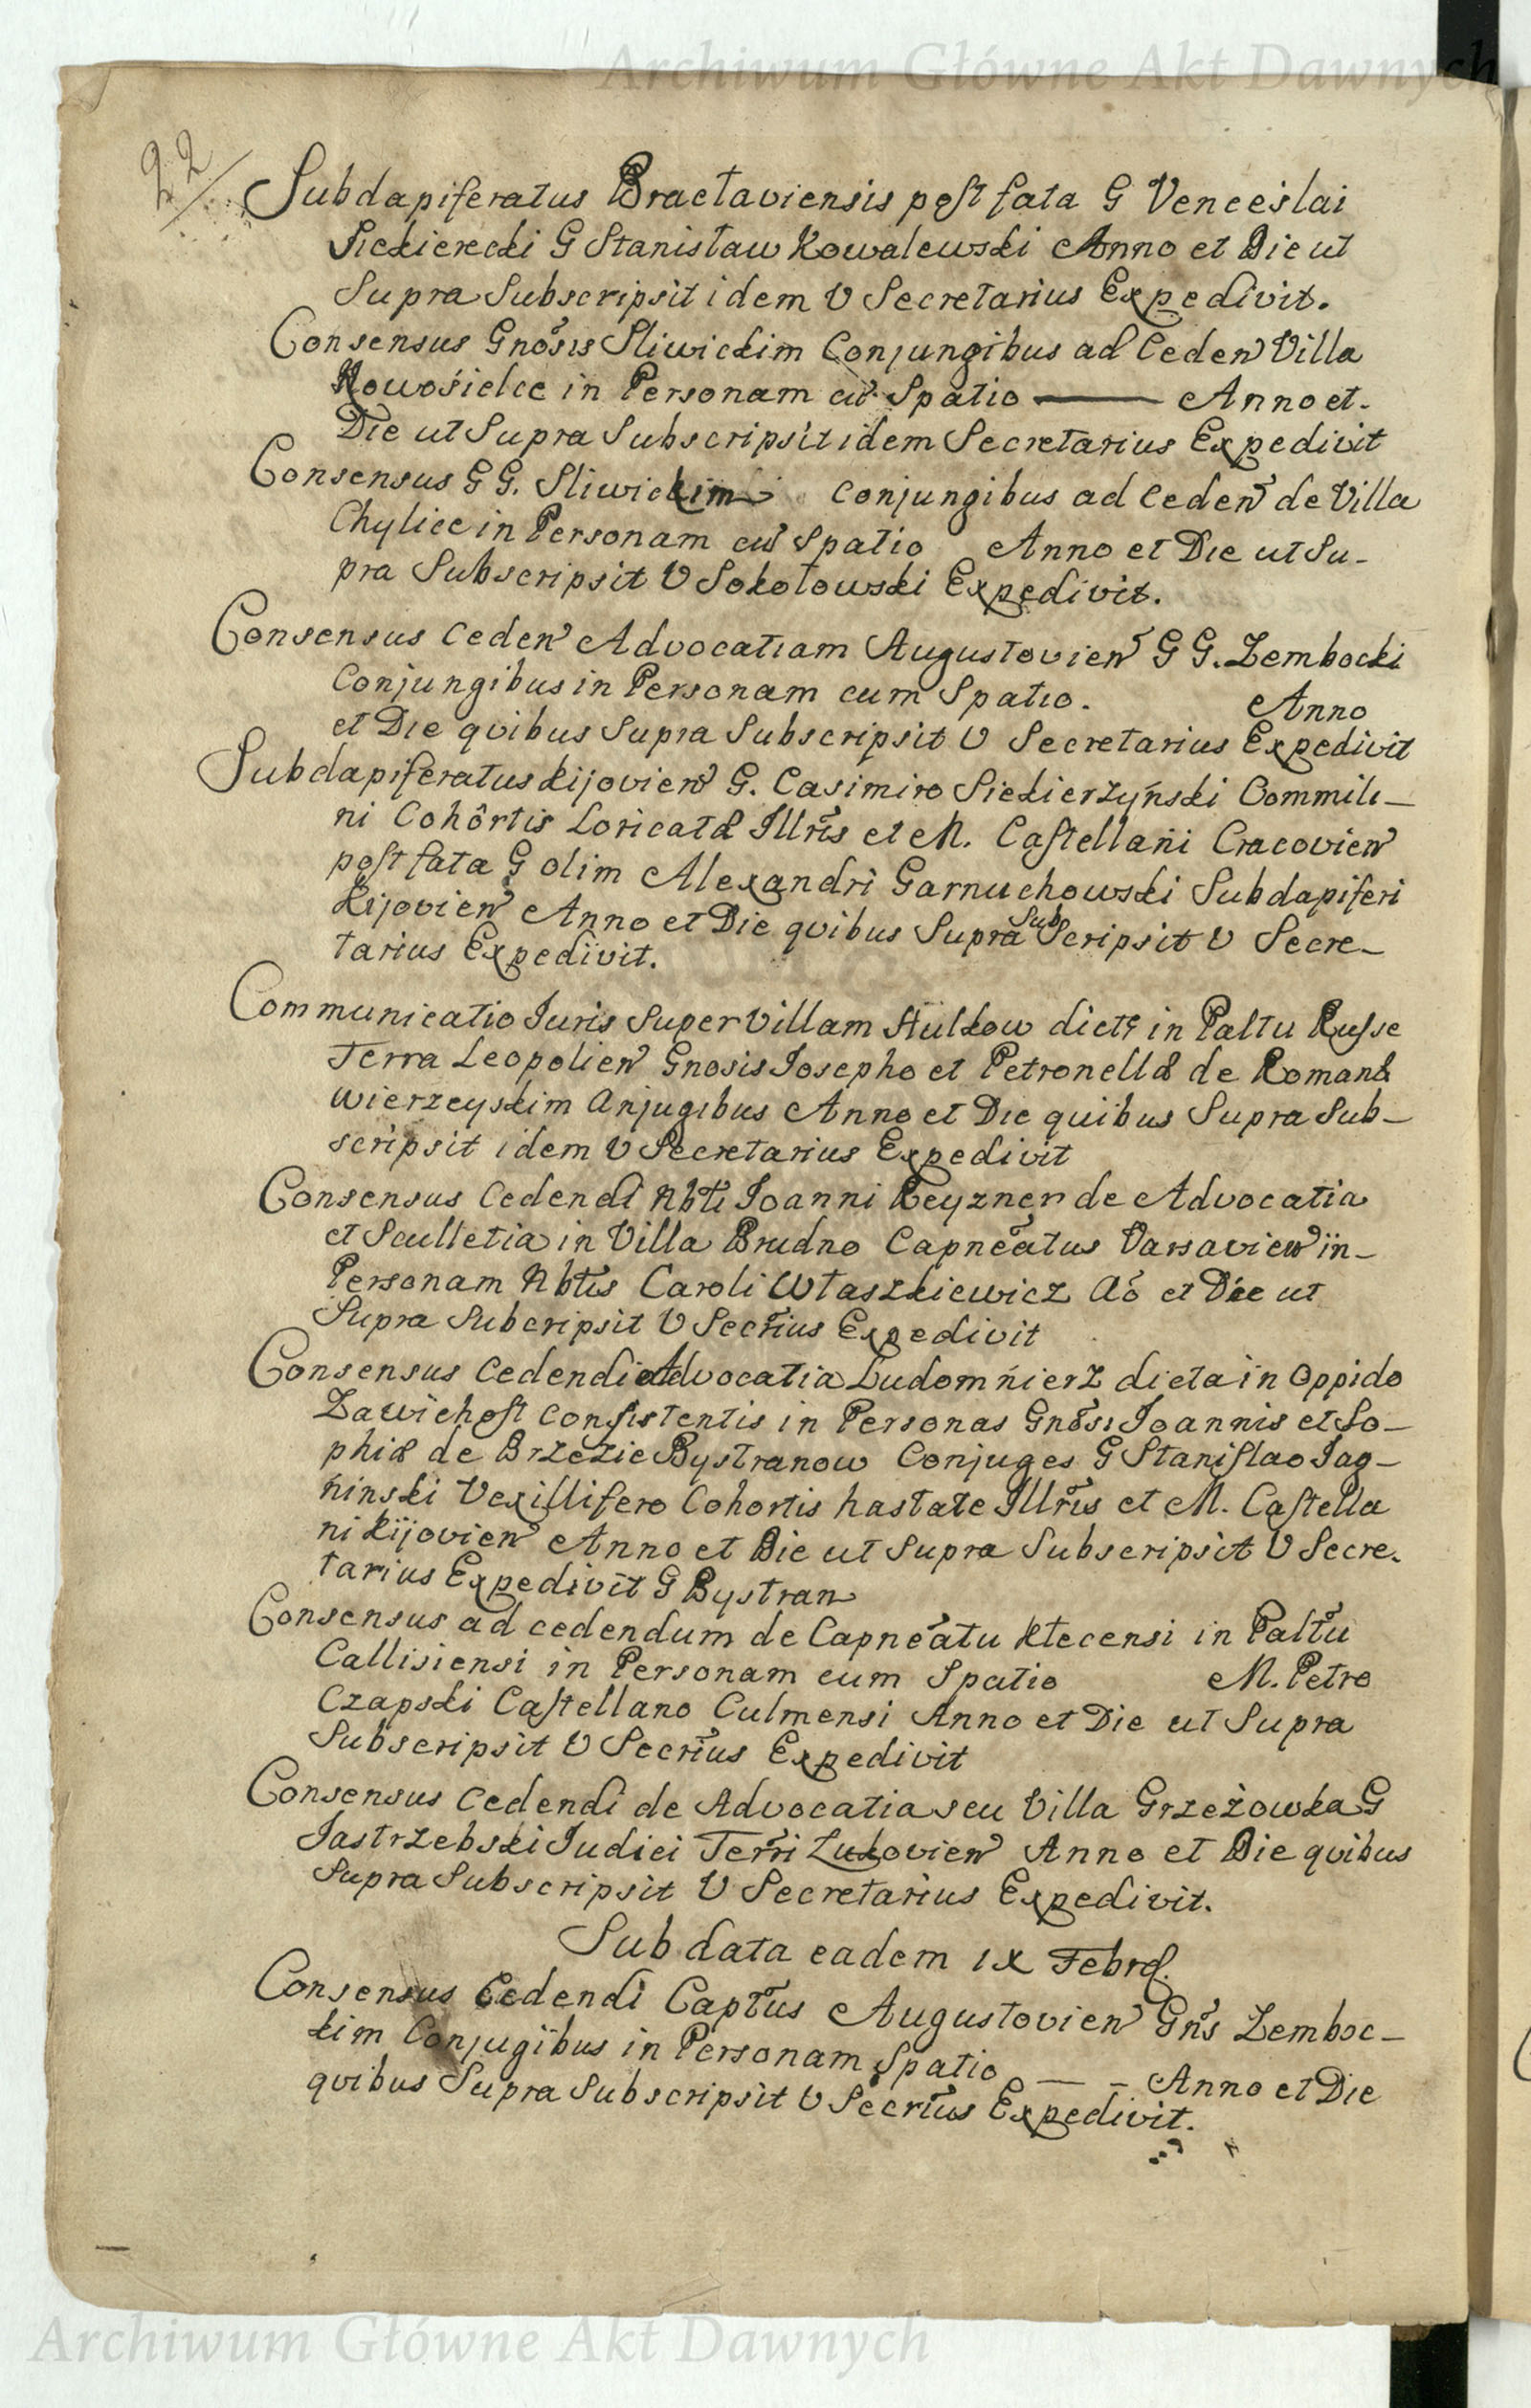 Archiwum Główne Akt Dawnych
22
Subdapiferatus Bractaviensis post fata G Venceislai
Siekierecki G Stanisław Kowalewski Anno et Die ut
Supra Subscripsit idem V Secretarius Expedivit.
Consensus Gnõsis Sliwickim Conjungibus ad Ceden Villa
Nowosielce in Personam cũ Spatio ——— Anno et.
Die ut Supra Subscripsit idem Secretarius Expedivit
Consensus GG. Sliwickim conjungibus ad Ceden de Villa
Chylice in Personam cũ Spatio Anno et Die ut Su-
pra Subscripsit V Sokołowski Expedivit.
Consensus Ceden Advocatiam Augustovien GG. Zembocki
Conjungibus in Personam cum Spatio. Anno
et Die quibus Supra Subscripsit V Secretarius Expedivit
Subdapiferatus Kijovien G. Casimiro Siekierzyński Commili-
ni Cohôrtis Loricatæ Illrĩs et M. Castellani Cracovien
post fata G olim Alexandri Garnuchowski Subdapiferi
Kijovien Anno et Die quibus Supra Subscripsit V Secre-
tarius Expedivit.
Communicatio Juris Super Villam Hulkow dictę in Paltu Russe
Terra Leopolien Gnosis Josepho et Petronellæ de Romanæ
Wierzeyskim Conjugibus Anno et Die quibus Supra Sub-
scripsit idem V Secretarius Expedivit
Consensus Cedendi Nbti Joanni Reyzner de Advocatia
et Scultetia in Villa Brudno Capneãtus Varsavien in-
Personam Nbtis Caroli Własszkiewicz Aõ et Die ut
Supra Subcripsit V Secrĩus Expedivit
Consensus Cedendi Advocatia Ludomńierz dicta in Oppido
Zawichost consistentis in Personas Gnõsi Joannis et So-
phiæ de Brzezie Bystranow Conjuges G Stanislao Jag-
ninski Vexillifero Cohortis hastate Illrĩs et M. Castella
ni Kijovien Anno et Die ut Supra Subscripsit V Secre.
tarius Expedivit G Bystran
Consensus ad cedendum de Capneãtu Klecensi in Paltũ
Callisiensi in Personam cum Spatio M. Petro
Czapski Castellano Culmensi Anno et Die ut Supra
Subscripsit V Secrĩus Expedivit
Consensus Cedendi de Advocatia seu Villa Grzeżowka G
Jastrzebski Judici Terrĩ Lukovien Anno et Die quibus
Supra Subscripsit V Secretarius Expedivit.
Sub data eadem IX Febrꝭ.
Consensus Cedendi Captũs Augustovien Gñs Zemboc-
kim Conjugibus in Personam Spatio — - Anno et Die
quibus Supra Subscripsit V Secrĩus Expedivit.
Archiwum Główne Akt Dawnych